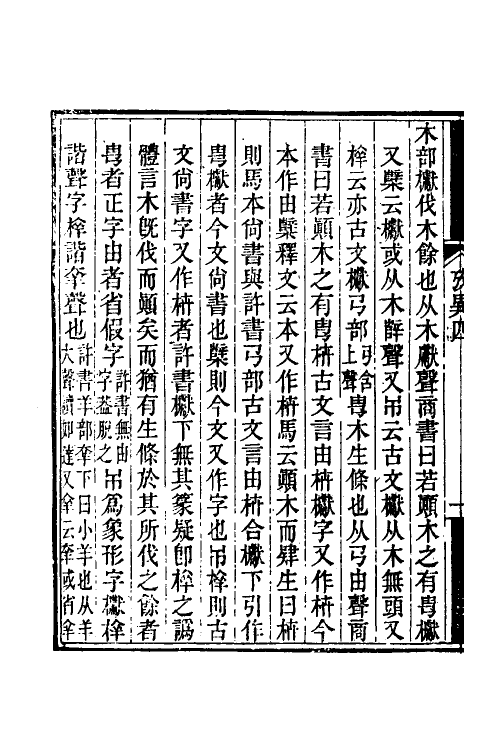 木部櫱伐木餘也从木獻聲商書曰若顚木之有㽕櫱
又櫱云櫱或从木辥聲又𣎴云古文櫱从木無頭又
㭐云亦古文櫱弓部弓舍上聲㽕木生條也从弓由聲商
書曰若顚木之有㽕枿古文言由枿櫱字又作枿今
本作由櫱釋文云本又作枿馬云顚木而肄生曰枿
則馬本尙書與許書弓部古文言由枿合櫱下引作
㽕櫱者今文尙書也櫱則今文又作字也𣎴㭐則古
文尙書字又作枿者許書櫱下無其篆疑卽㭐之譌
體言木旣伐而顚矣而猶有生條於其所伐之餘者
㽕者正字由者省假字許書無由字葢脫之𣎴爲象形字櫱㭐
諧聲字㭐諧㚔聲也許書羊部羍下曰小羊也从羊大聲讀如達又㚔云羍或省㭐